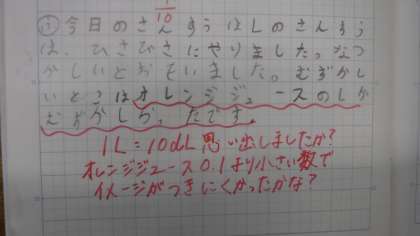 1/10
② 今日のさんすうはLのさんすう
は、ひさびさにやりました。なつ
かしいとおもいました。むずかし
いところはオレンジジュースのLが
むずかしかったです。
1L=10dL 思い出しましたか?
オレンジジュース0.1より小さい数で
イメージがつきにくかったかな?